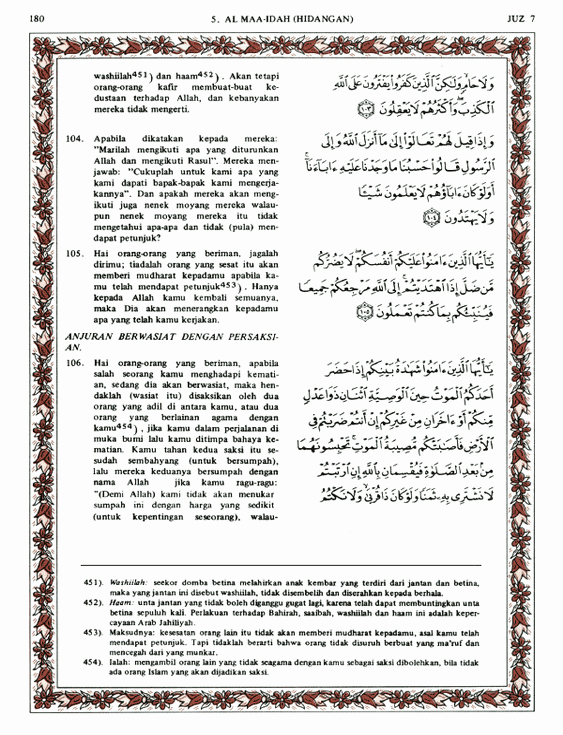 180 5. AL MAA-IDAH (HIDANGAN) JUZ 7
washiilah451) dan haam452). Akan tetapi
orang-orang kafir membuat-buat ke-
dustaan terhadap Allah, dan kebanyakan
mereka tidak mengerti.
104. Apabila dikatakan kepada mereka:
"Marilah mengikuti apa yang diturunkan
Allah dan mengikuti Rasul". Mereka men-
jawab: "Cukuplah untuk kami apa yang
kami dapati bapak-bapak kami mengerja-
kannya". Dan apakah mereka akan meng-
ikuti juga nenek moyang mereka walau-
pun nenek moyang mereka itu tidak
mengetahui apa-apa dan tidak (pula) men-
dapat petunjuk?
105. Hai orang-orang yang beriman, jagalah
dirimu; tiadalah orang yang sesat itu akan
memberi mudharat kepadamu apabila ka-
mu telah mendapat petunjuk453). Hanya
kepada Allah kamu kembali semuanya,
maka Dia akan menerangkan kepadamu
apa yang telah kamu kerjakan.
ANJURAN BERWASIAT DENGAN PERSAKSI-
AN.
106. Hai orang-orang yang beriman, apabila
salah seorang kamu menghadapi kemati-
an, sedang dia akan berwasiat, maka hen-
daklah (wasiat itu) disaksikan oleh dua
orang yang adil di antara kamu, atau dua
orang yang berlainan agama dengan
kamu454), jika kamu dalam perjalanan di
muka bumi lalu kamu ditimpa bahaya ke-
matian. Kamu tahan kedua saksi itu se-
sudah sembahyang (untuk bersumpah),
lalu mereka keduanya bersumpah dengan
nama Allah jika kamu ragu-ragu:
"(Demi Allah) kami tidak akan menukar
sumpah ini dengan harga yang sedikit
(untuk kepentingan seseorang), walau-
وَلَا حَامٍ وَلَٰكِنَّ ٱلَّذِينَ كَفَرُوا۟ يَفْتَرُونَ عَلَى ٱللَّهِ
ٱلْكَذِبَ وَأَكْثَرُهُمْ لَا يَعْقِلُونَ ١٠٣
وَإِذَا قِيلَ لَهُمْ تَعَالَوْا۟ إِلَىٰ مَآ أَنزَلَ ٱللَّهُ وَإِلَى
ٱلرَّسُولِ قَالُوا۟ حَسْبُنَا مَا وَجَدْنَا عَلَيْهِ ءَابَآءَنَآ
أَوَلَوْ كَانَ ءَابَآؤُهُمْ لَا يَعْلَمُونَ شَيْـًٔا
وَلَا يَهْتَدُونَ ١٠٤
يَٰٓأَيُّهَا ٱلَّذِينَ ءَامَنُوا۟ عَلَيْكُمْ أَنفُسَكُمْ لَا يَضُرُّكُم
مَّن ضَلَّ إِذَا ٱهْتَدَيْتُمْ إِلَى ٱللَّهِ مَرْجِعُكُمْ جَمِيعًا
فَيُنَبِّئُكُم بِمَا كُنتُمْ تَعْمَلُونَ ١٠٥
يَٰٓأَيُّهَا ٱلَّذِينَ ءَامَنُوا۟ شَهَٰدَةُ بَيْنِكُمْ إِذَا حَضَرَ
أَحَدَكُمُ ٱلْمَوْتُ حِينَ ٱلْوَصِيَّةِ ٱثْنَانِ ذَوَا عَدْلٍ
مِّنكُمْ أَوْ ءَاخَرَانِ مِنْ غَيْرِكُمْ إِنْ أَنتُمْ ضَرَبْتُمْ فِى
ٱلْأَرْضِ فَأَصَٰبَتْكُم مُّصِيبَةُ ٱلْمَوْتِ تَحْبِسُونَهُمَا
مِنۢ بَعْدِ ٱلصَّلَوٰةِ فَيُقْسِمَانِ بِٱللَّهِ إِنِ ٱرْتَبْتُمْ
لَا نَشْتَرِى بِهِۦ ثَمَنًا وَلَوْ كَانَ ذَا قُرْبَىٰ وَلَا نَكْتُمُ
451). Washiilah: seekor domba betina melahirkan anak kembar yang terdiri dari jantan dan betina,
maka yang jantan ini disebut washiilah, tidak disembelih dan diserahkan kepada berhala.
452). Haam: unta jantan yang tidak boleh diganggu gugat lagi, karena telah dapat membuntingkan unta
betina sepuluh kali. Perlakuan terhadap Bahirah, saaibah, washiilah dan haam ini adalah keper-
cayaan Arab Jahiliyah.
453). Maksudnya: kesesatan orang lain itu tidak akan memberi mudharat kepadamu, asal kamu telah
mendapat petunjuk. Tapi tidaklah berarti bahwa orang tidak disuruh berbuat yang ma'ruf dan
mencegah dari yang munkar.
454). Ialah: mengambil orang lain yang tidak seagama dengan kamu sebagai saksi dibolehkan, bila tidak
ada orang Islam yang akan dijadikan saksi.